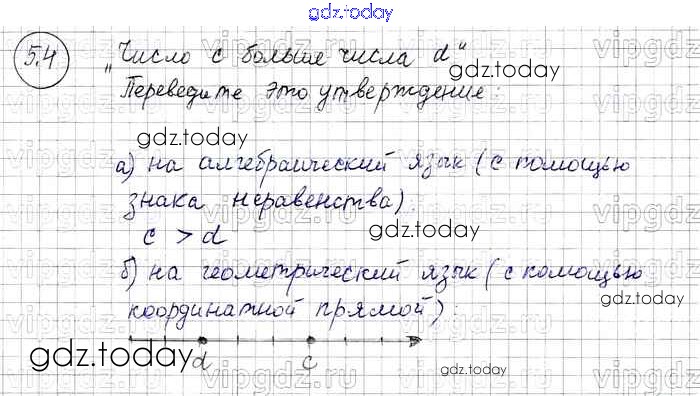 gdz.today
5.4
„Число c больше числа d"
gdz.today
Переведите это утверждение:
gdz.today
а) на алгебраический язык (с помощью
знака неравенства).
c > d
gdz.today
б) на геометрический язык (с помощью
координатной прямой):
gdz.today
d c
gdz.today